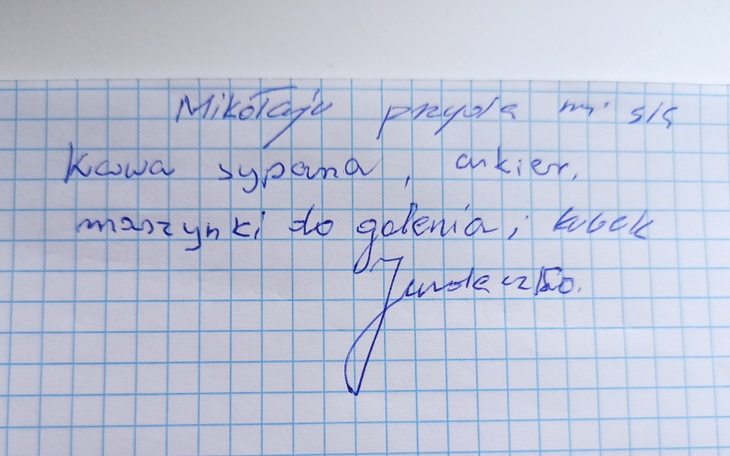 Mikołaju przyda mi się
Kawa sypana, cukier,
maszynki do golenia, kubek